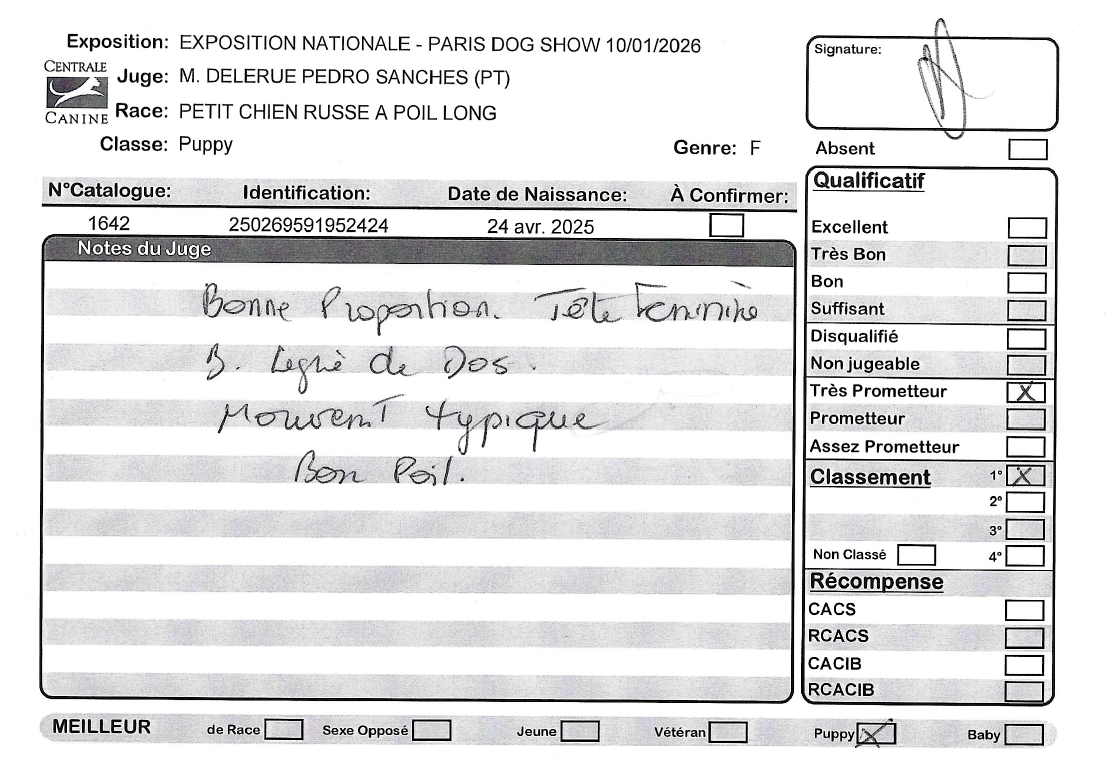 Exposition: EXPOSITION NATIONALE - PARIS DOG SHOW 10/01/2026
CENTRALE CANINE
Juge: M. DELERUE PEDRO SANCHES (PT)
Race: PETIT CHIEN RUSSE A POIL LONG
Classe: Puppy Genre: F
Signature:
Absent
N°Catalogue: Identification: Date de Naissance: À Confirmer:
1642 250269591952424 24 avr. 2025
Notes du Juge
Bonne Proportion. Tête Feminine
B. Legne de Dos.
Mouvemt typique
Bon Poil.
Qualificatif
Excellent
Très Bon
Bon
Suffisant
Disqualifié
Non jugeable
Très Prometteur X
Prometteur
Assez Prometteur
Classement 1° X
2°
3°
Non Classé 4°
Récompense
CACS
RCACS
CACIB
RCACIB
MEILLEUR de Race Sexe Opposé Jeune Vétéran Puppy X Baby